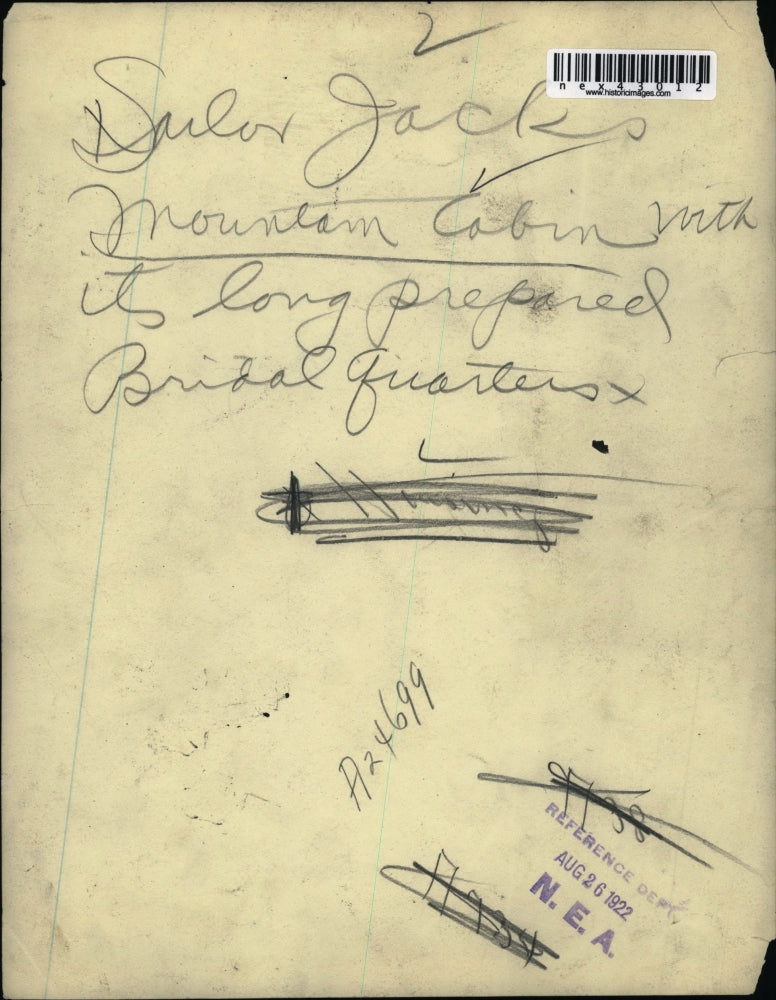 2
nex43012
www.historicimages.com
Sailor Jacks
Mountain Cabin with
its long prepared
Bridal Quarters x
A24699
REFERENCE DEPT.
AUG 26 1922
N. E. A.